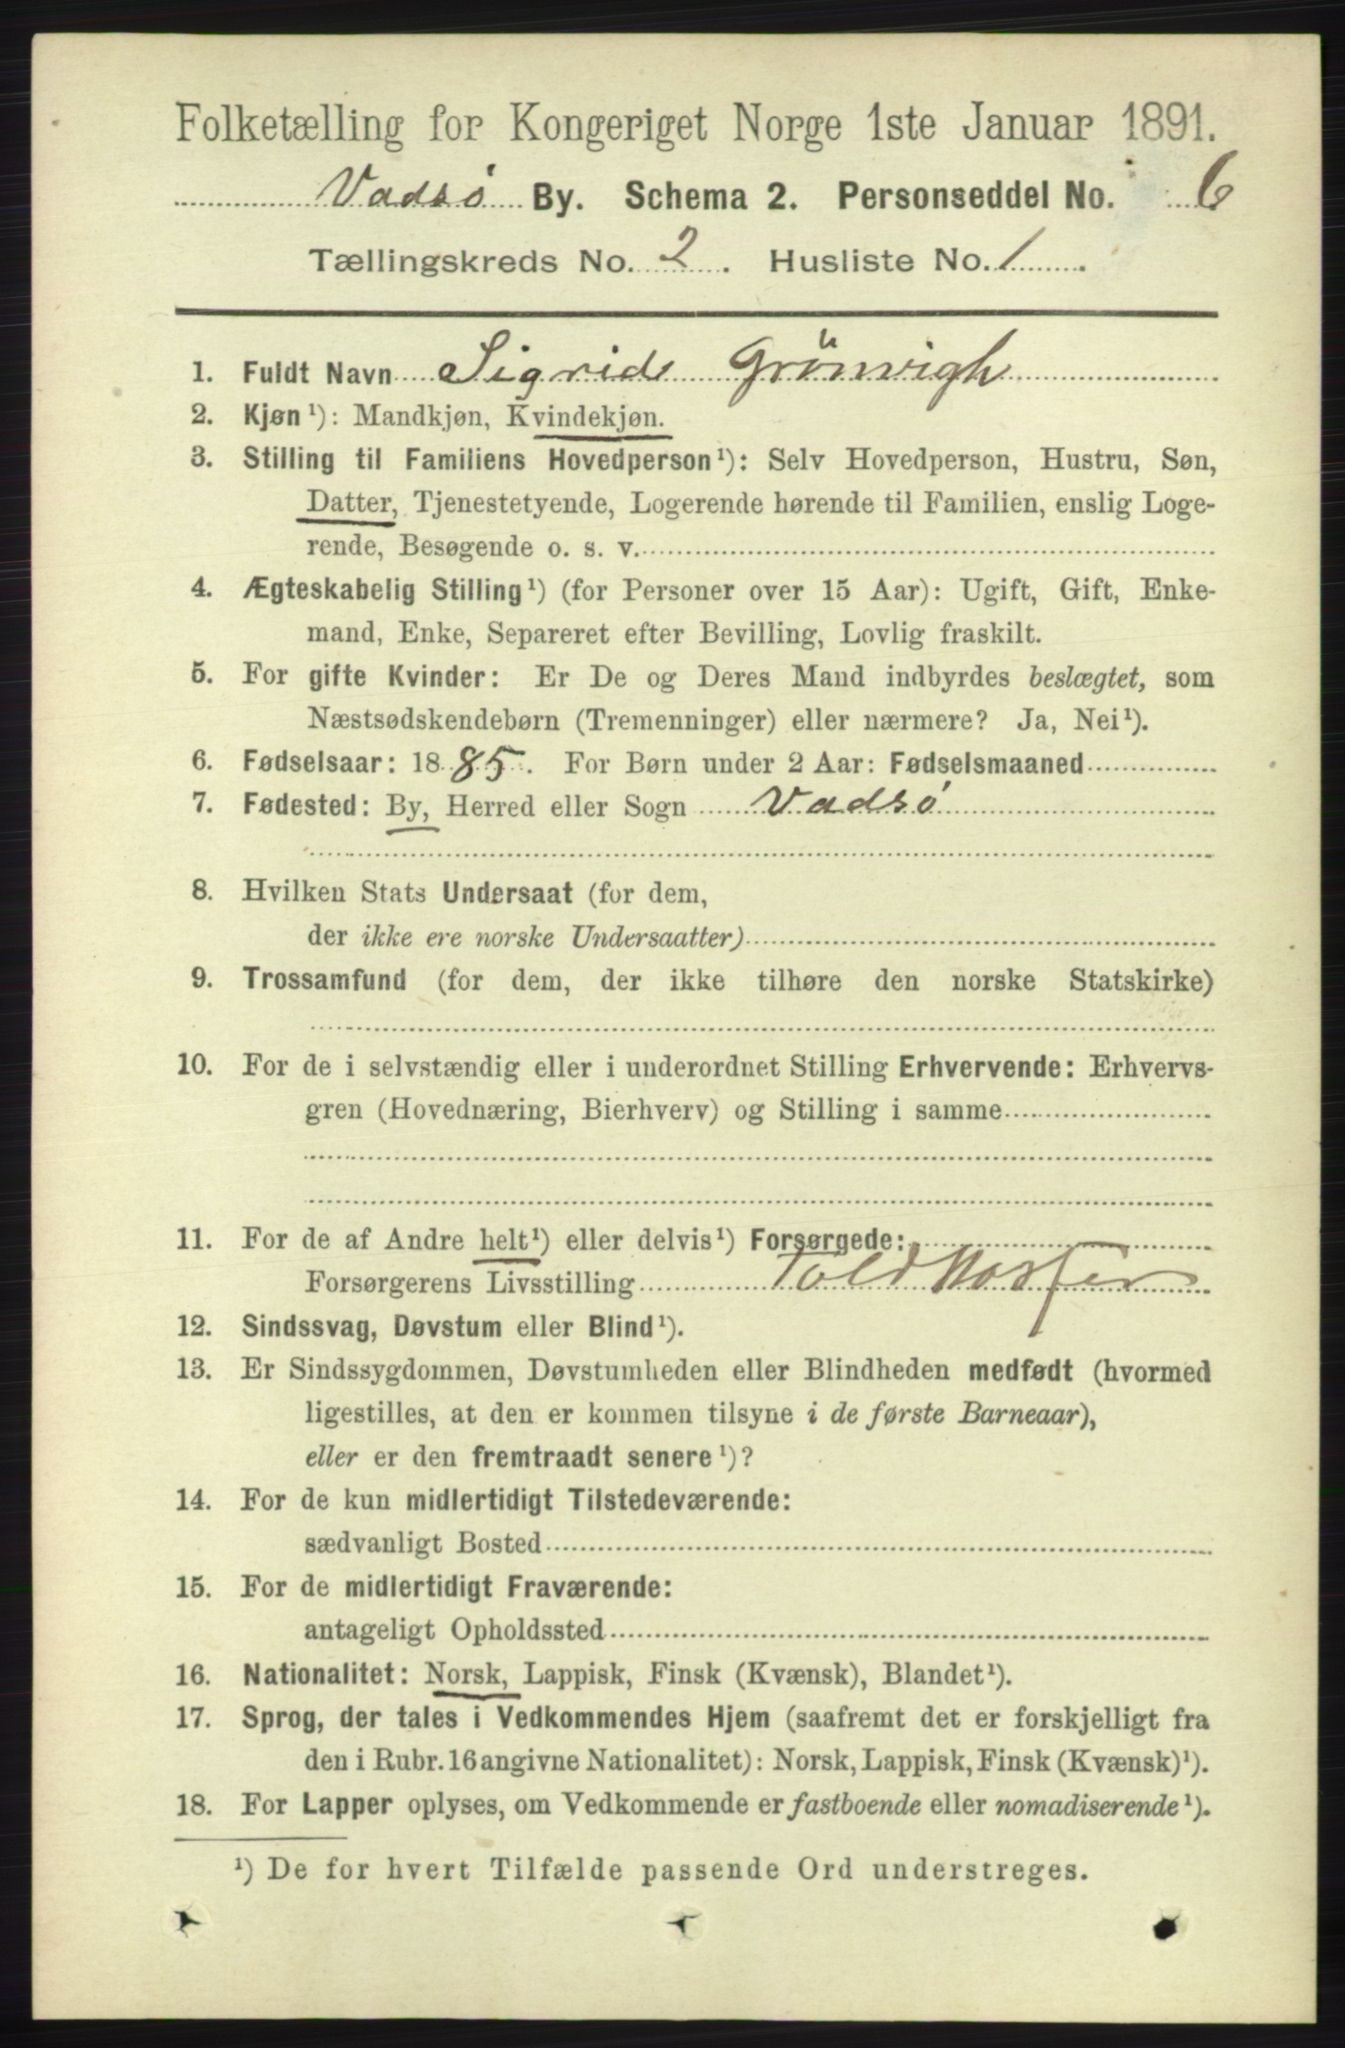 Folketælling for Kongeriget Norge 1ste Januar 1891.
Vadsø By. Schema 2. Personseddel No. 6
Tællingskreds No. 2. Husliste No. 1.
1. Fuldt Navn Sigrid Grönvigh
2. Kjøn ¹): Mandkjøn, Kvindekjøn.
3. Stilling til Familiens Hovedperson ¹): Selv Hovedperson, Hustru, Søn,
Datter, Tjenestetyende, Logerende hørende til Familien, enslig Loge-
rende, Besøgende o. s. v.
4. Ægteskabelig Stilling ¹) (for Personer over 15 Aar): Ugift, Gift, Enke-
mand, Enke, Separeret efter Bevilling, Lovlig fraskilt.
5. For gifte Kvinder: Er De og Deres Mand indbyrdes beslægtet, som
Næstsødskendebørn (Tremenninger) eller nærmere? Ja, Nei ¹).
6. Fødselsaar: 1885. For Børn under 2 Aar: Fødselsmaaned
7. Fødested: By, Herred eller Sogn Vadsø
8. Hvilken Stats Undersaat (for dem,
der ikke ere norske Undersaatter)
9. Trossamfund (for dem, der ikke tilhøre den norske Statskirke)
10. For de i selvstændig eller i underordnet Stilling Erhvervende: Erhvervs-
gren (Hovednæring, Bierhverv) og Stilling i samme
11. For de af Andre helt ¹) eller delvis ¹) Forsørgede:
Forsørgerens Livsstilling Toldkasserer
12. Sindssvag, Døvstum eller Blind ¹).
13. Er Sindssygdommen, Døvstumheden eller Blindheden medfødt (hvormed
ligestilles, at den er kommen tilsyne i de første Barneaar),
eller er den fremtraadt senere ¹)?
14. For de kun midlertidigt Tilstedeværende:
sædvanligt Bosted
15. For de midlertidigt Fraværende:
antageligt Opholdssted
16. Nationalitet: Norsk, Lappisk, Finsk (Kvænsk), Blandet ¹).
17. Sprog, der tales i Vedkommendes Hjem (saafremt det er forskjelligt fra
den i Rubr. 16 angivne Nationalitet): Norsk, Lappisk, Finsk (Kvænsk) ¹).
18. For Lapper oplyses, om Vedkommende er fastboende eller nomadiserende ¹).
¹) De for hvert Tilfælde passende Ord understreges.